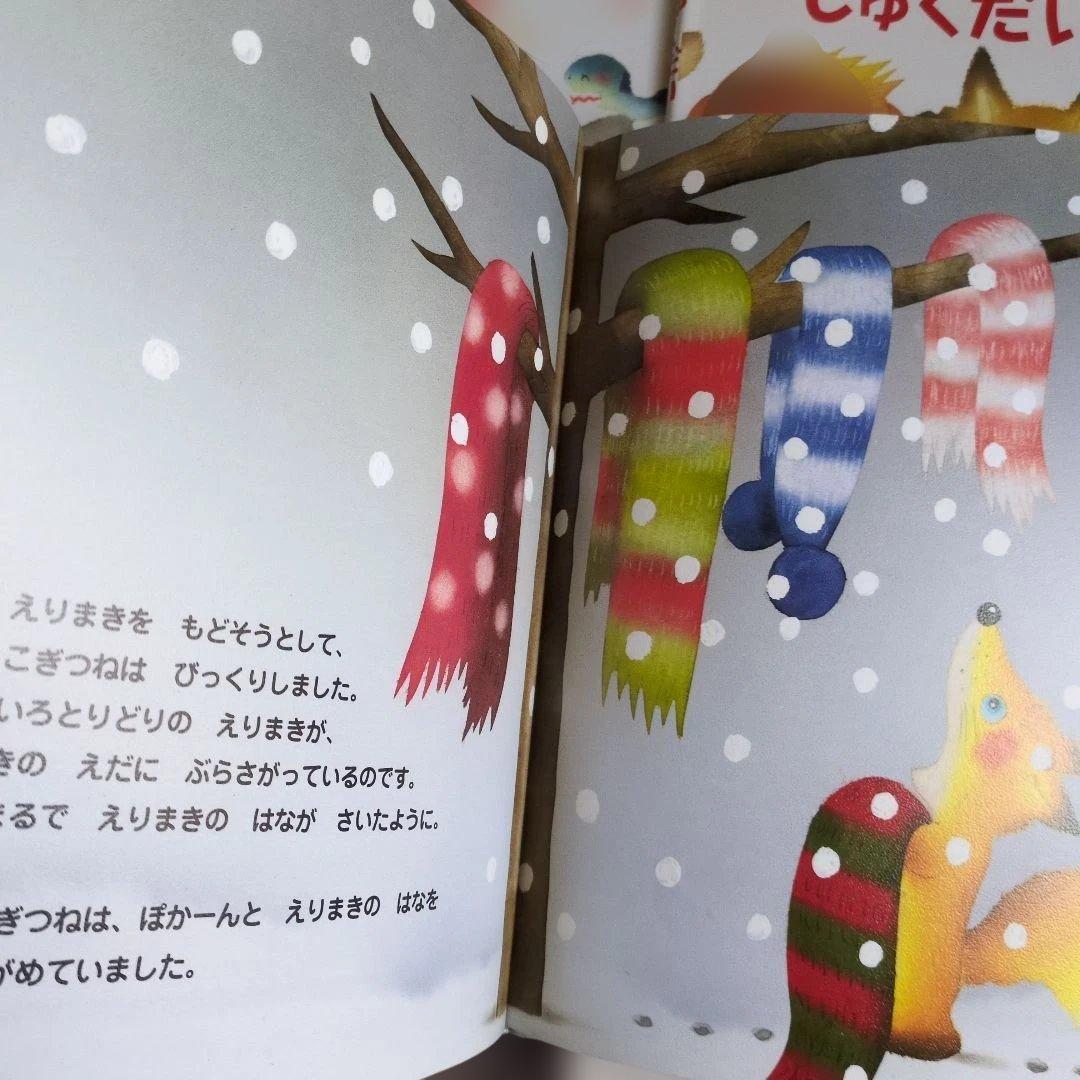 しゅくだい
えりまきを もどそうとして、
こぎつねは びっくりしました。
いろとりどりの えりまきが、
きの えだに ぶらさがっているのです。
まるで えりまきの はなが さいたように。
ぎつねは、ぽかーんと えりまきの はなを
がめていました。